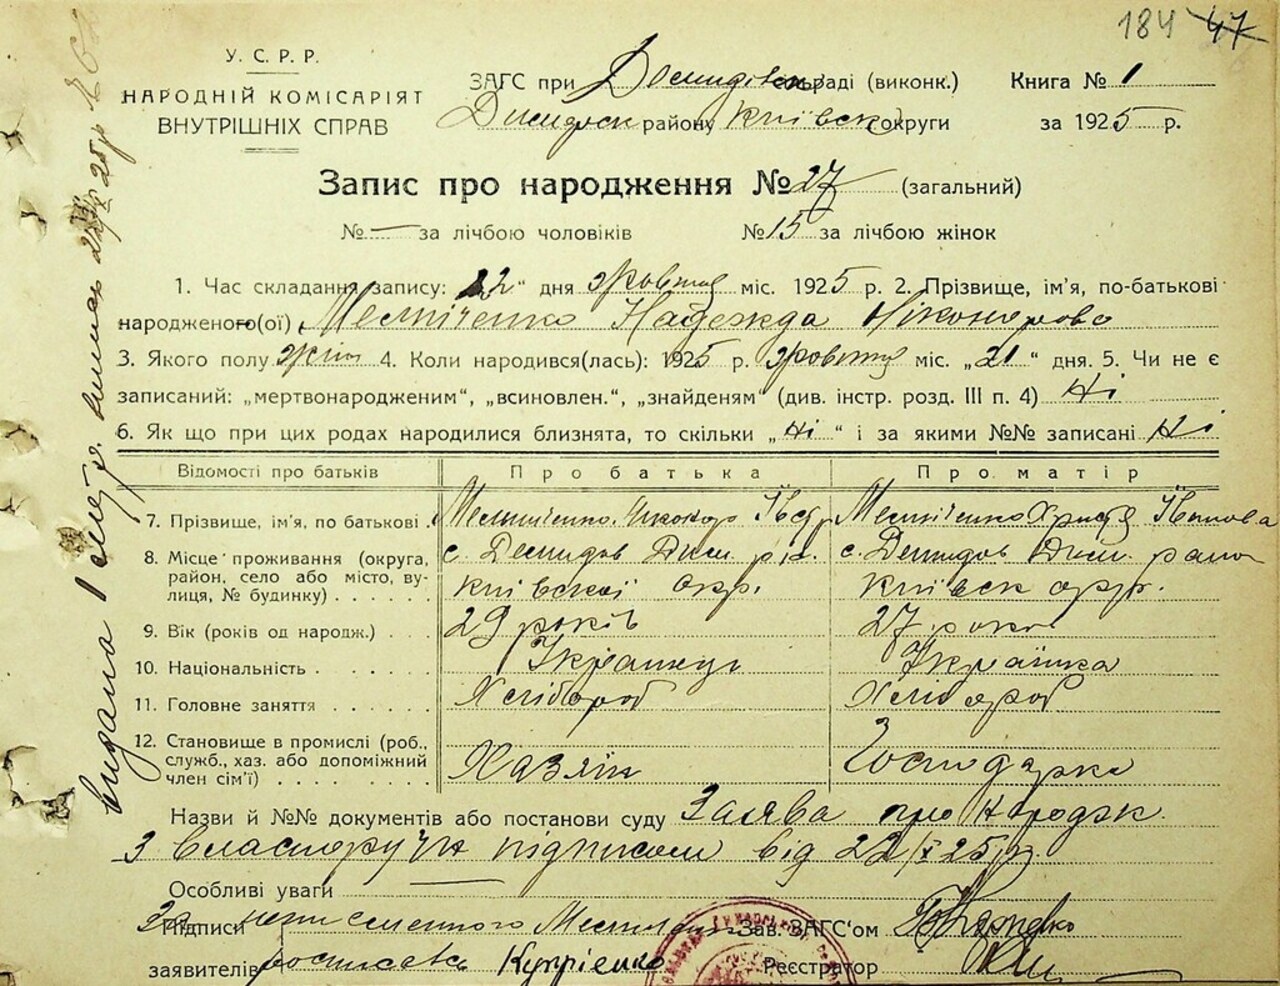 184 47
У. С. Р. Р.
НАРОДНІЙ КОМІСАРІЯТ
ВНУТРІШНІХ СПРАВ
ЗАГС при Демидівськ сельраді (виконк.)
Димерск району Київськ округи
Книга № 1
за 1925 р.
Запис про народження № 27 (загальний)
№ — за лічбою чоловіків № 15 за лічбою жінок
1. Час складання запису: „22“ дня жовтня міс. 1925 р. 2. Прізвище, ім'я, по-батькові
народженого(ої) Мельніченко Надежда Ніконорово
3. Якого полу жін 4. Коли народився(лась): 1925 р. жовтня міс. „21“ дня. 5. Чи не є
записаний: „мертвонародженим“, „всиновлен.“, „знайденям“ (див. інстр. розд. III п. 4) Ні
6. Як що при цих родах народилися близнята, то скільки „Ні“ і за якими №№ записані Ні
Відомості про батьків Про батька Про матір
7. Прізвище, ім'я, по батькові Мельниченко Никонор Мельніченко Христя Іванова
8. Місце проживання (округа, с. Демидов Дим. рн. с. Демидов Дим. району
район, село або місто, ву- Київської окр. Київськ окр.
лиця, № будинку)
9. Вік (років од народж.) 29 років 27 роки
10. Національність Українець Українка
11. Головне заняття Хлібороб Хлібороб
12. Становище в промислі (роб., служб., хаз. або допоміжний член сім'ї) Хазяїн Господарка
Назви й №№ документів або постанови суду Заява про народж.
з власноручн підписом від 22/X 25 р
Особливі уваги —
Підписи За неписьменного Зав. ЗАГС'ом
заявителів росписавсь Купрієнко Реєстратор
видано 1 25 р